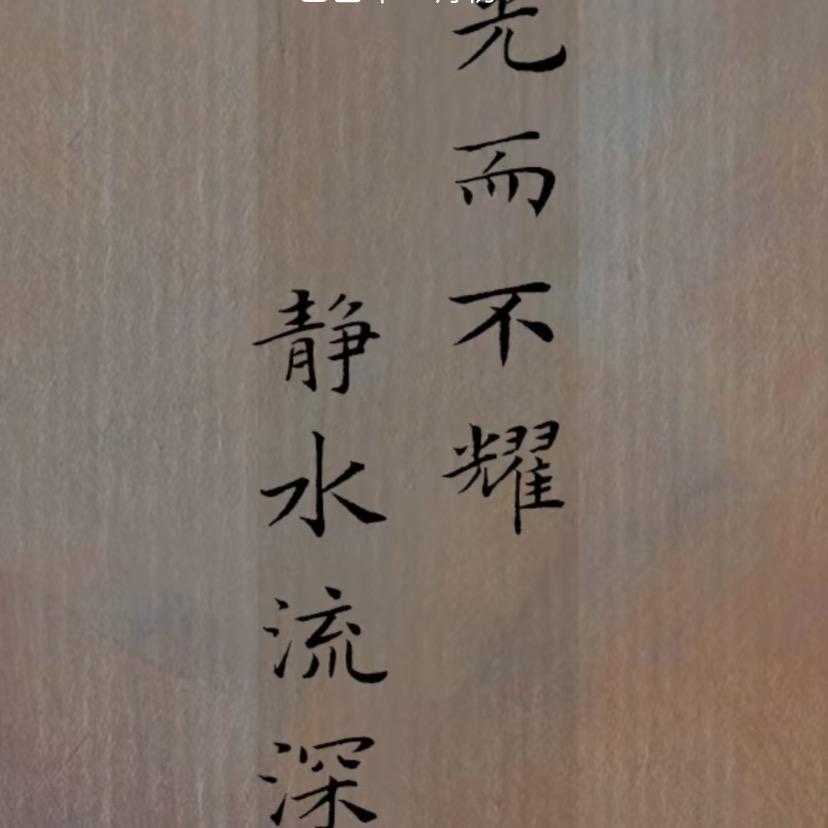 光而不耀
静水流深